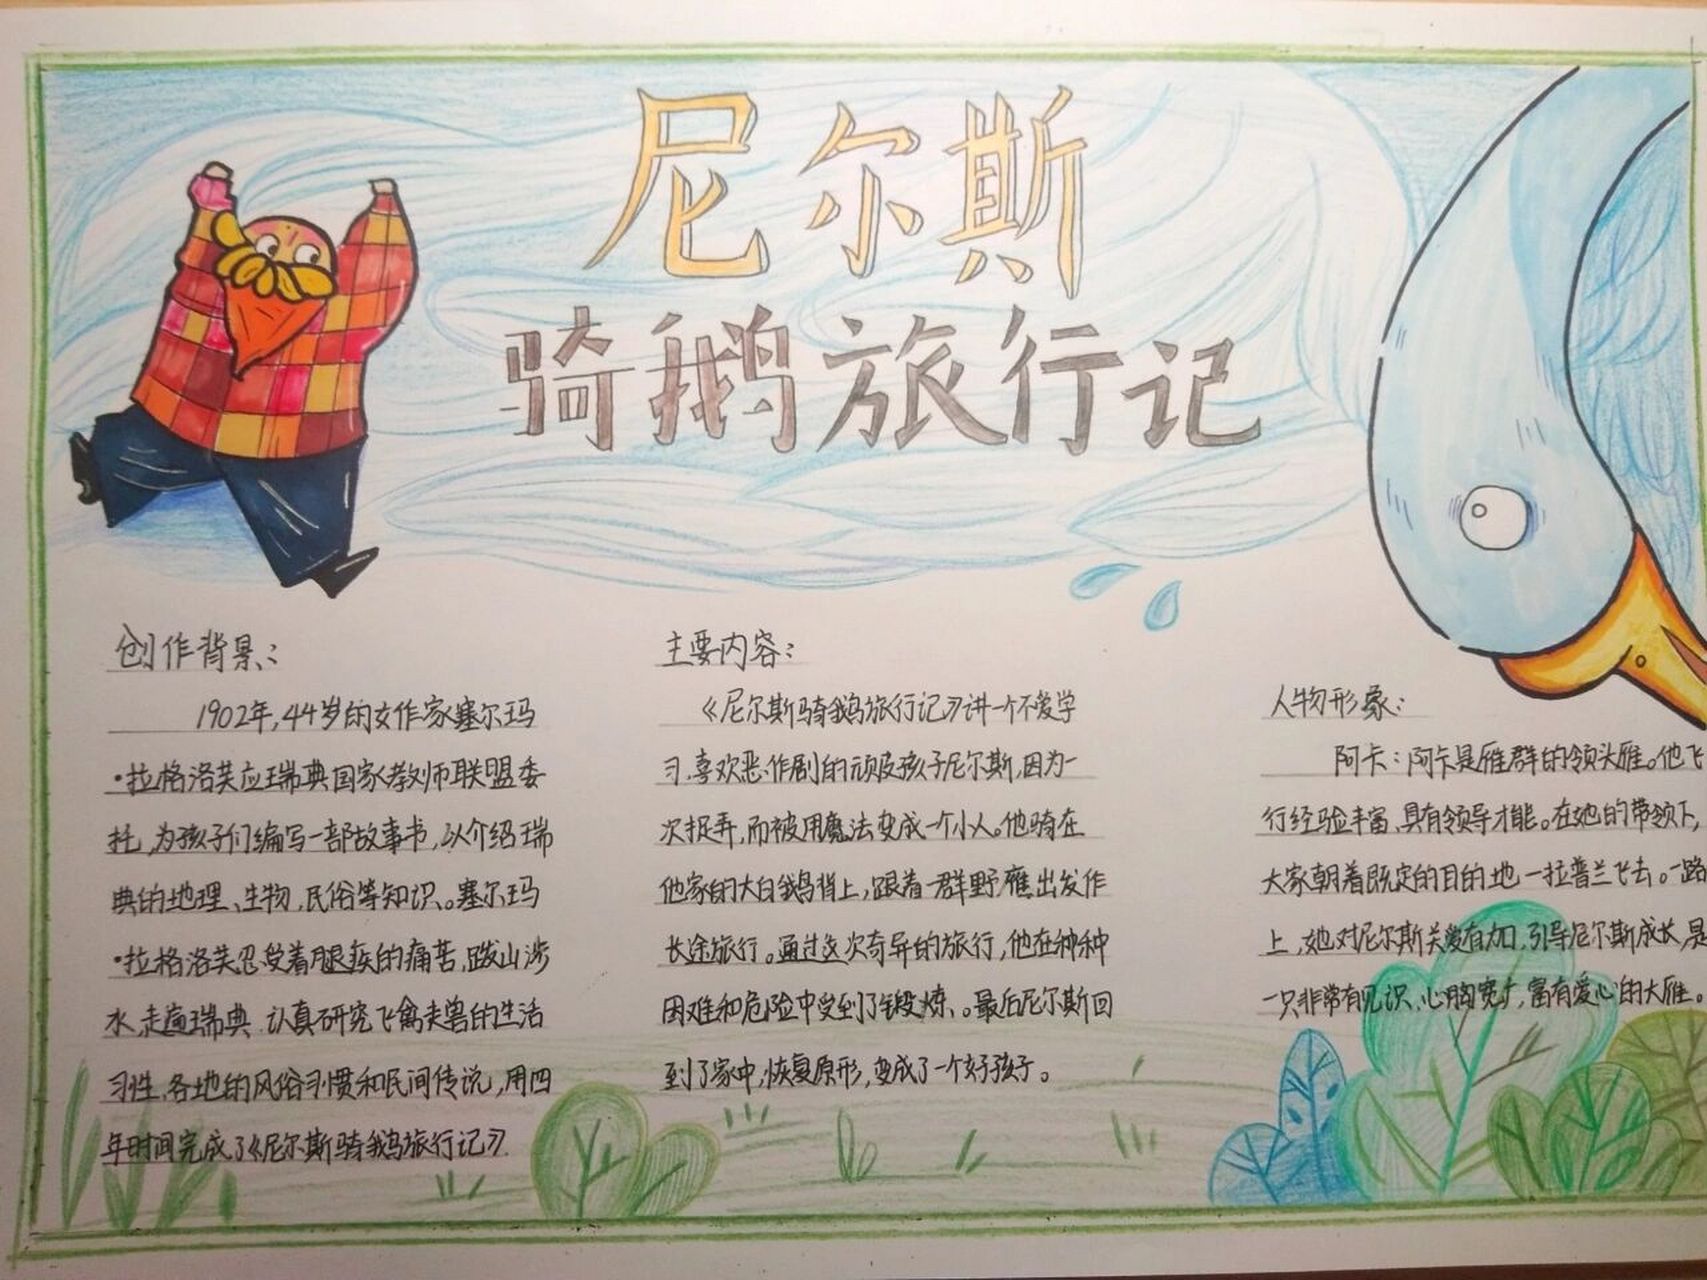 尼尔斯
骑鹅旅行记
创作背景:
1902年,44岁的女作家塞尔玛
·拉格洛芙应瑞典国家教师联盟委
托,为孩子们编写一部故事书,以介绍瑞
典的地理、生物,民俗等知识。塞尔玛
·拉格洛芙忍受着腿疾的痛苦,跋山涉
水,走遍瑞典,认真研究飞禽走兽的生活
习性,各地的风俗习惯和民间传说,用四
年时间完成了《尼尔斯骑鹅旅行记》.
主要内容:
《尼尔斯骑鹅旅行记》讲一个不爱学
习,喜欢恶作剧的顽皮孩子尼尔斯,因为一
次捉弄,而被用魔法变成一个小人。他骑在
他家的大白鹅背上,跟着一群野雁出发作
长途旅行。通过这次奇异的旅行,他在种种
困难和危险中受到了锻炼。最后尼尔斯回
到了家中,恢复原形,变成了一个好孩子。
人物形象:
阿卡:阿卡是雁群的领头雁。他飞
行经验丰富,具有领导才能。在她的带领下,
大家朝着既定的目的地一拉普兰飞去。一路
上,她对尼尔斯关爱有加,引导尼尔斯成长,是
一只非常有见识,心胸宽广,富有爱心的大雁。